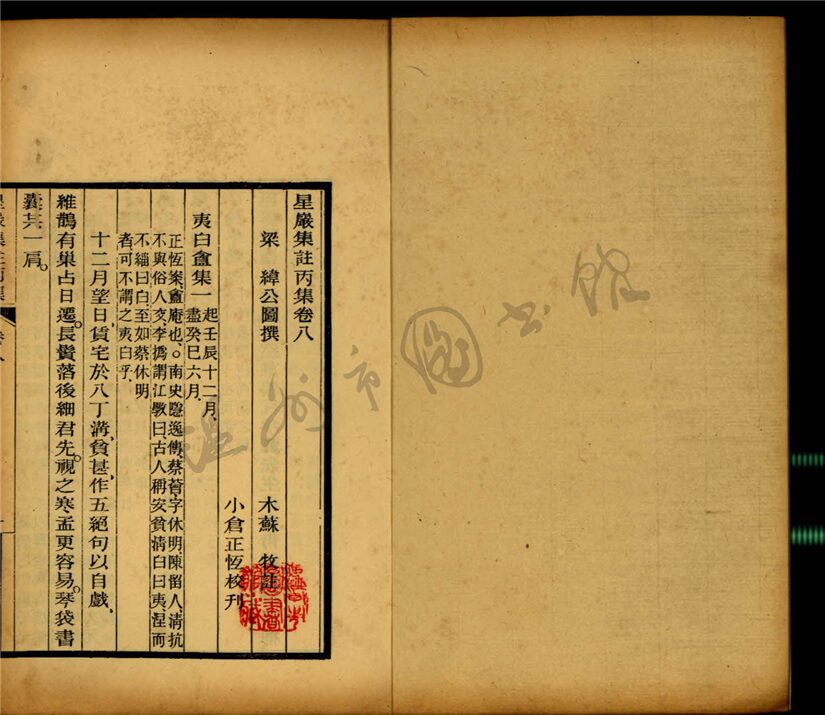 星巖集註丙集卷八
梁　緯公圖撰　木蘇　牧註
小倉正恆校刊
夷白盦集一　起壬辰十二月、盡癸巳六月、
正恆案、盦庵也、○南史隱逸傳、蔡薈、字休明、陳留人、淸抗
不與俗人交、李撝謂江斅曰、古人稱安貧淸白曰夷、涅而
不緇曰白、至如蔡休明
者、可不謂之夷白乎、
十二月望日、賃宅於八丁溝、貧甚、作五絕句以自戲、
維鵲有巢占日遷。長鬚落後細君先。視之寒孟更容易。琴袋書
囊共一肩。
溫州市圖書館